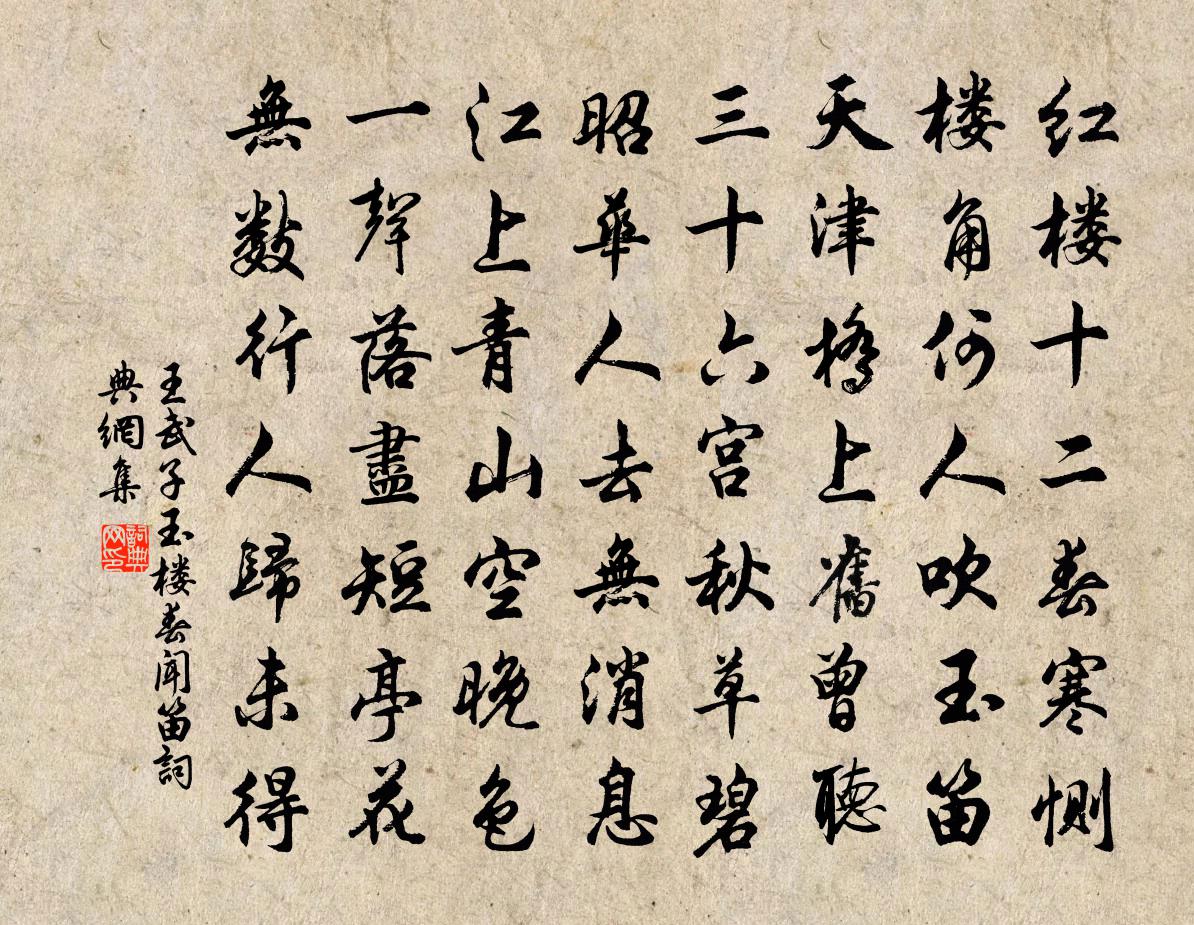 红楼十二春寒恻
楼角何人吹玉笛
天津橋上舊曾聽
三十六宫秋草碧
昭華人去無消息
江上青山空晚色
一聲落盡短亭花
無數行人歸未得
王武子玉楼春闻笛詞
典網集
詞典
网印